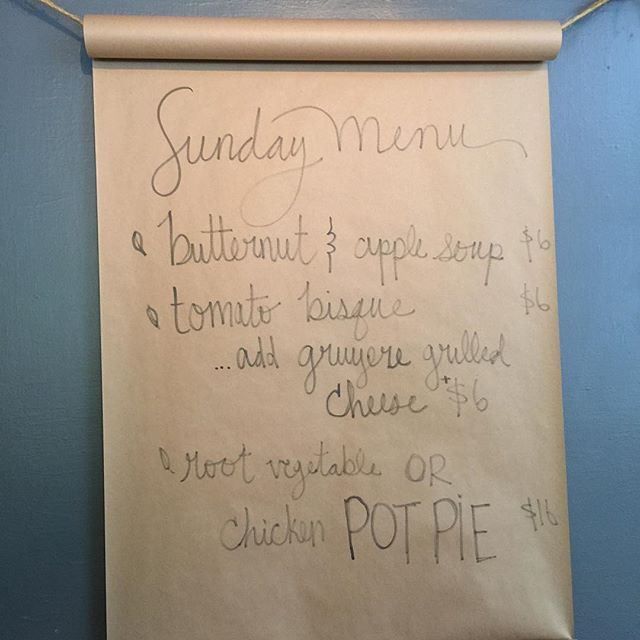 Sunday Menu
butternut & apple soup $6
tomato bisque $6
...add gruyere grilled
cheese +$6
root vegetable OR
chicken POT PIE $16